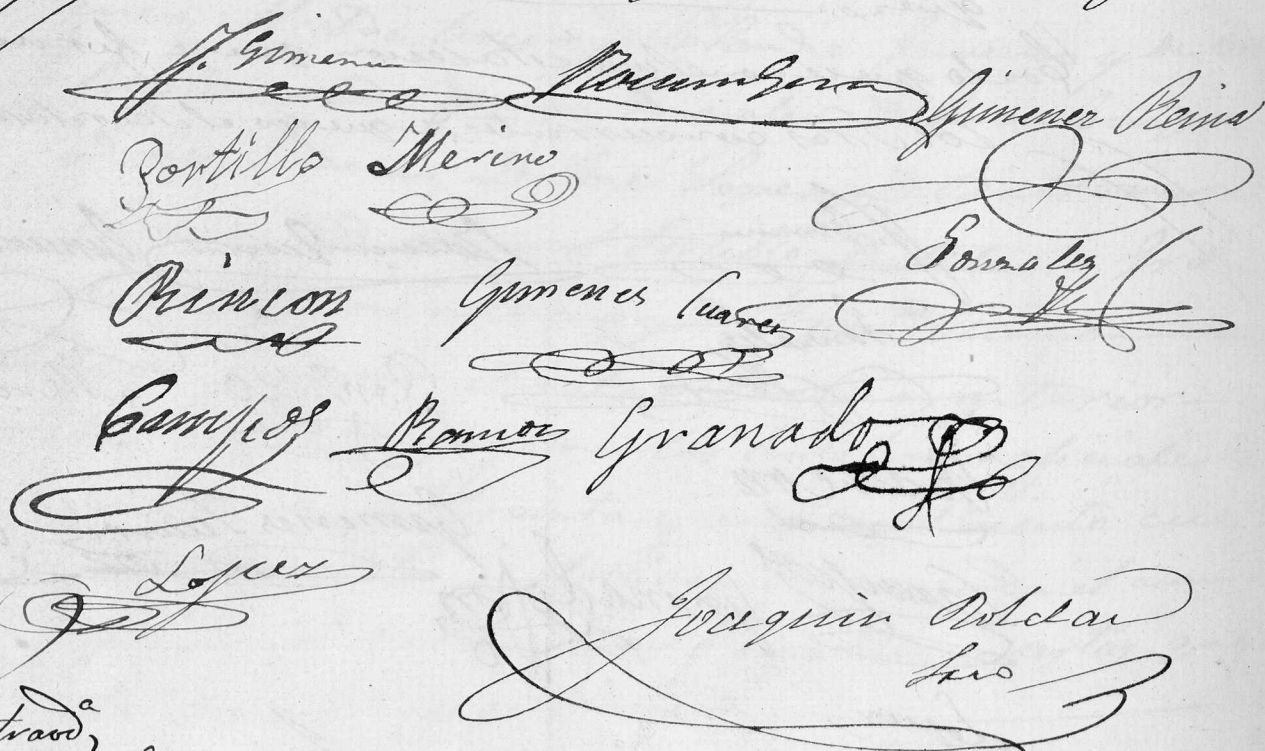 J. Gimena Gimenez Reina
Portillo Merino
Gonzalez
Rincon Gimenes Cuarez
Campos Ramos Granado
Lopez
Joaquin Roldan
Srio